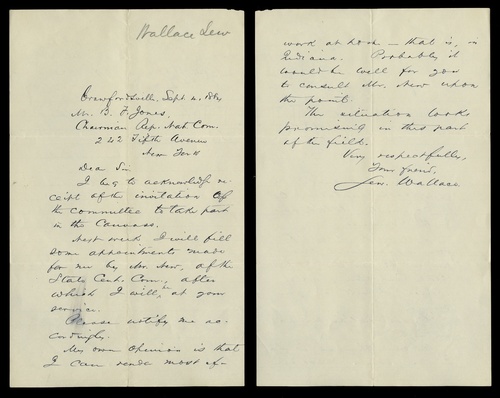 Wallace Lew
Crawfordsville, Sept. 4,
Mr. B. F. Jones,
Chairman Rep. Nat. Com.
242 Fifth Avenue
New York
Dear Sir
I beg to acknowledge re-
ceipt of the invitation of
the committee to take part
in the Canvass.
Next week I will fill
some appointments made
for me by Mr. New, of the
State Cent. Com., after
which I will be at your
service.
Please notify me ac-
cordingly.
My own opinion is that
I can render most ef-
work at home — that is, in
Indiana. Probably it
would be well for you
to consult Mr. New upon
the point.
The situation looks
promising in this part
of the field.
Very respectfully,
Your friend,
Lew. Wallace